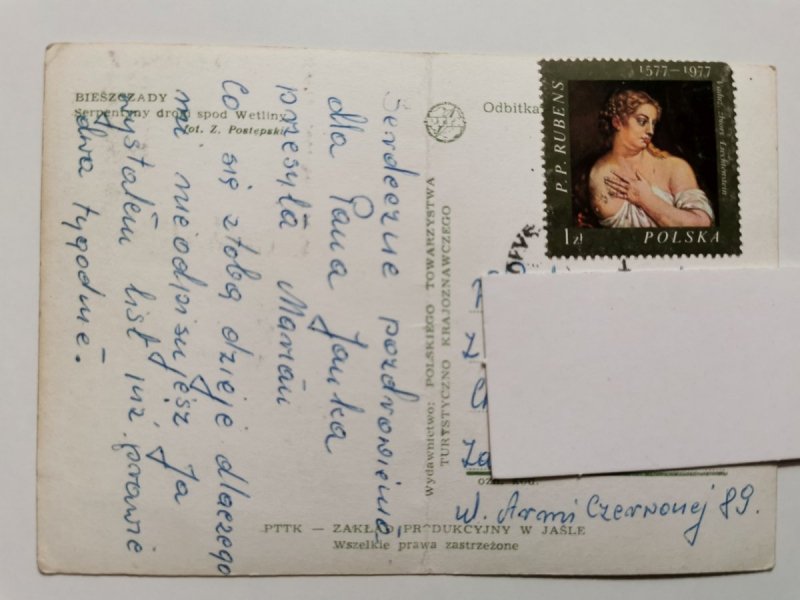 BIESZCZADY
Serpentyny drogi spod Wetliny
fot. Z. Postępski
Serdeczne pozdrowienia,
dla Pana Janka
przesyła Marian
Co się ztobą dzieje dlaczego
mi nieodpisujesz Ja
wystałem list już prawie
dwa tygodnie.
Wydawnictwo: POLSKIEGO TOWARZYSTWA
TURYSTYCZNO KRAJOZNAWCZEGO
Odbitka
1577-1977
P.P. RUBENS
Vaduz, Zbiory Liechtensteinów
1 zł POLSKA
ozn. kod.
ul. Armi Czerwonej 89.
PTTK — ZAKŁAD PRODUKCYJNY W JAŚLE
Wszelkie prawa zastrzeżone